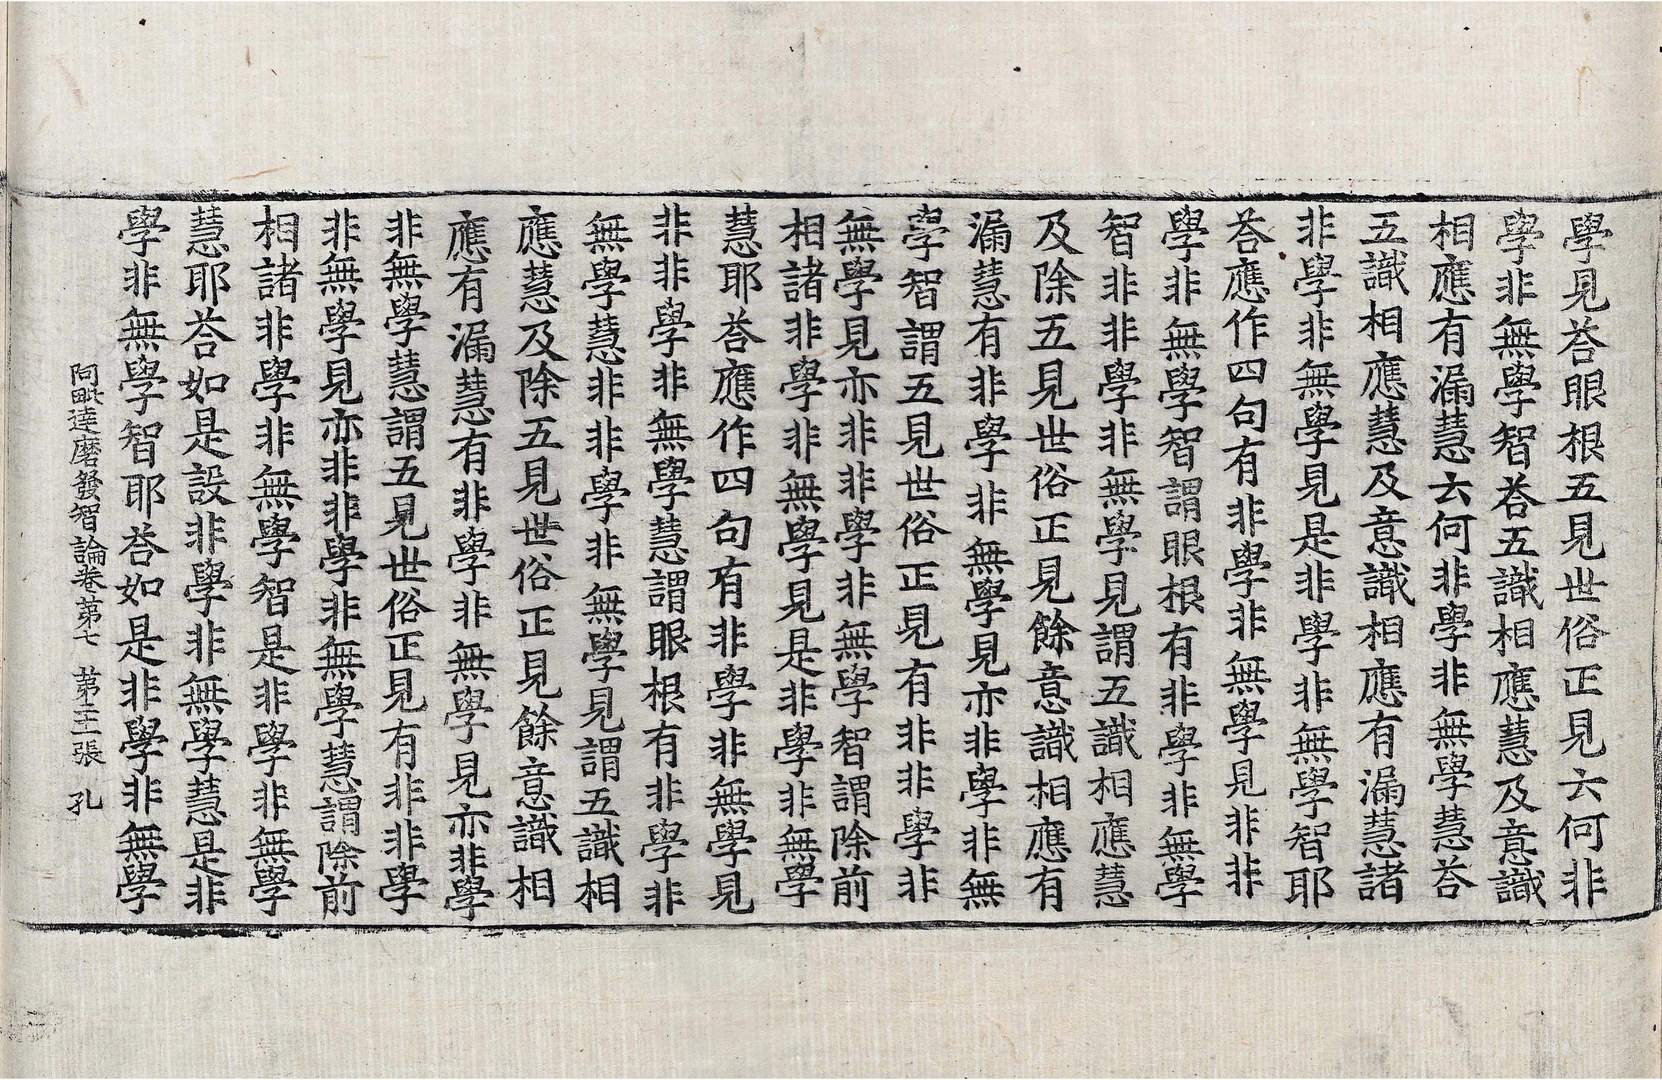 學見荅眼根五見世俗正見云何非
學非無學智荅五識相應慧及意識
相應有漏慧云何非學非無學慧荅
五識相應慧及意識相應有漏慧諸
非學非無學見是非學非無學智耶
荅應作四句有非學非無學見非非
學非無學智謂眼根有非學非無學
智非非學非無學見謂五識相應慧
及除五見世俗正見餘意識相應有
漏慧有非學非無學見亦非學非無
學智謂五見世俗正見有非非學非
無學見亦非非學非無學智謂除前
相諸非學非無學見是非學非無學
慧耶荅應作四句有非學非無學見
非非學非無學慧謂眼根有非學非
無學慧非非學非無學見謂五識相
應慧及除五見世俗正見餘意識相
應有漏慧有非學非無學見亦非學
非無學慧謂五見世俗正見有非非學
非無學見亦非非學非無學慧謂除前
相諸非學非無學智是非學非無學
慧耶荅如是設非學非無學慧是非
學非無學智耶荅如是非學非無學
阿毗達磨發智論卷第七 第十三張 孔